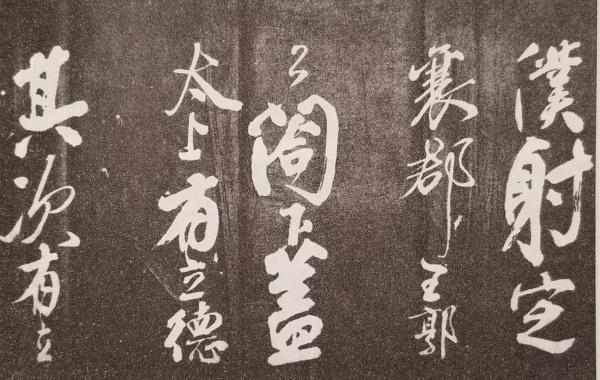 僕射定
襄郡王郭
公閤下盖
太上有立德
其次有立